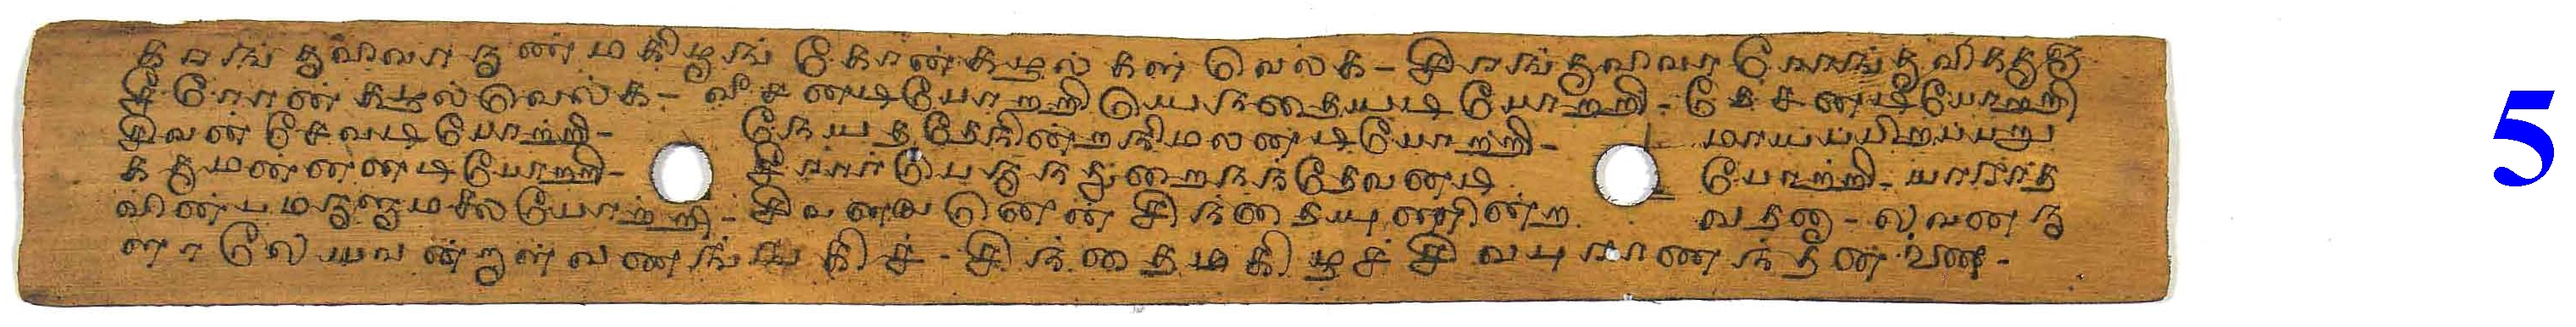 கரங்குவிவாருண்மகிழுங் கோன்கழல்கள் வெல்க - சிரங்குவிவாரோங்குவிக்குஞ்
சீரோன் கழல்வெல்க - ஈசனடிபோற்றி யெந்தையடி போற்றி - தேசனடிபோற்றி
சிவன் சேவடி போற்றி - நேயத்தேநின்றநிமலனடிபோற்றி - மாயப்பிறப்பறு
க்குமன்னனடிபோற்றி - சீரார்பெருந்துறைநந்தேவனடி போற்றி - யாராத
வின்பமருளுமலை போற்றி - சிவனவனென் சிந்தையுணின்ற வதனா - லவனரு
ளாலேயவன்றாள்வணங்கிச் - சிந்தைமகிழச் சிவபுராணந்தன்னை -
5